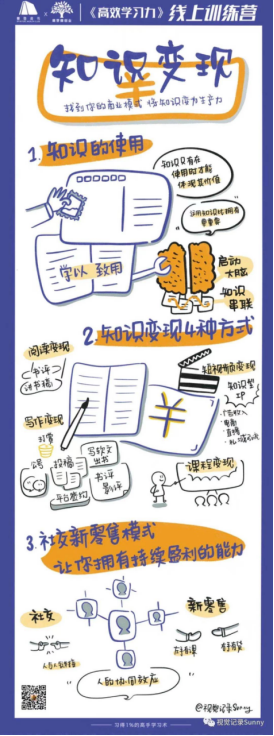 《高效学习力》线上训练营
知识变现
找到你的商业模式 将知识变为生产力
1. 知识的使用
知识只有在
使用时才能
体现其价值
运用知识比拥有
更重要
学以致用
启动
大脑
知识
串联
2. 知识变现4种方式
阅读变现
书评
讲书稿
短视频变现
知识型
IP
广告收入
电商
直播
写作变现
投稿
写软文
出书
书评
影评
平台签约
¥
课程变现
3. 社交新零售模式
让你拥有持续盈利的能力
社交
新零售
人的协同效应
@视觉记录Sunny
习得1%的高手学习术
视觉记录Sunny